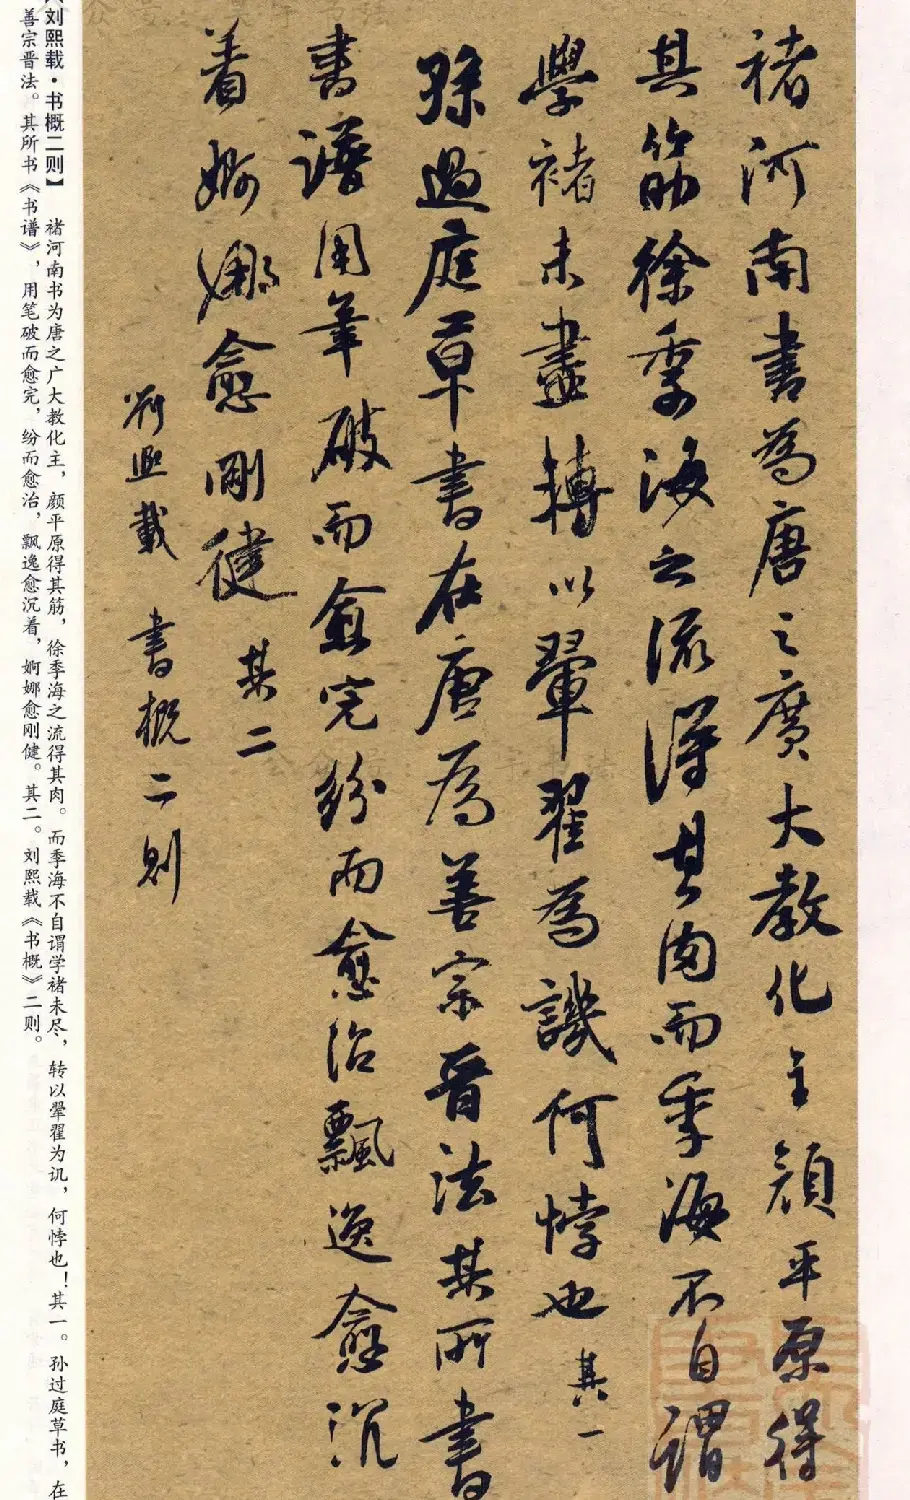 褚河南書為唐之廣大教化主顏平原得
其筋徐季海之流得其肉而季海不自謂
學褚未盡轉以翬翟為譏何悖也 其一
孫過庭草書在唐為善宗晉法其所書
書譜用筆破而愈完紛而愈治飄逸愈沉
着婀娜愈剛健 其二
劉熙載 書概二則
【刘熙载·书概二则】 褚河南书为唐之广大教化主，颜平原得其筋，徐季海之流得其肉。而季海不自谓学褚未尽，转以翚翟为讥，何悖也！其一。孙过庭草书，在
善宗晋法。其所书《书谱》，用笔破而愈完，纷而愈治，飘逸愈沉着，婀娜愈刚健。其二。刘熙载《书概》二则。